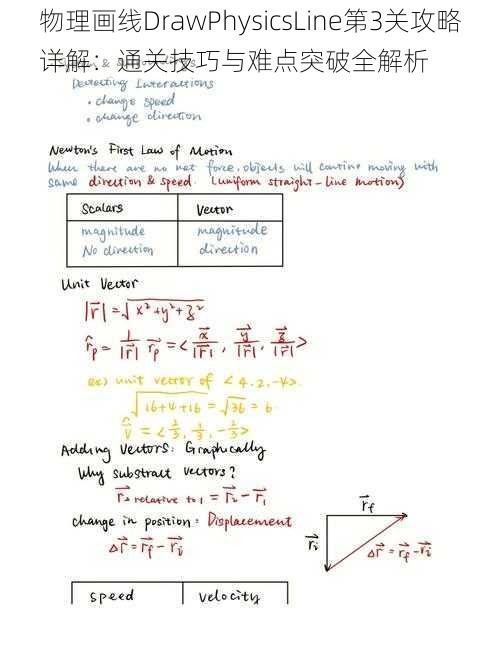 物理画线DrawPhysicsLine第3关攻略
详解：通关技巧与难点突破全解析
Detecting Interactions
• change speed
• change direction
Newton's First Law of Motion
When there are no net force, objects will continue moving with
same direction & speed. (uniform straight-line motion)
Scalars Vector
magnitude magnitude
No direction direction
Unit Vector
|r⃗| = √x²+y²+z²
r̂p = 1/|r⃗| r⃗p = <x⃗/|r⃗|, y⃗/|r⃗|, z⃗/|r⃗|>
ex) unit vector of <4, 2, -4>.
√16+4+16 = √36 = 6.
v̂ = <2/3, 1/3, -2/3>
Adding Vectors: Graphically
Why substract vectors?
r⃗2 relative to 1 = r⃗2 - r⃗1
change in position: Displacement
Δr⃗ = r⃗f - r⃗i
r⃗f
r⃗i
Δr⃗ = r⃗f - r⃗i
speed velocity